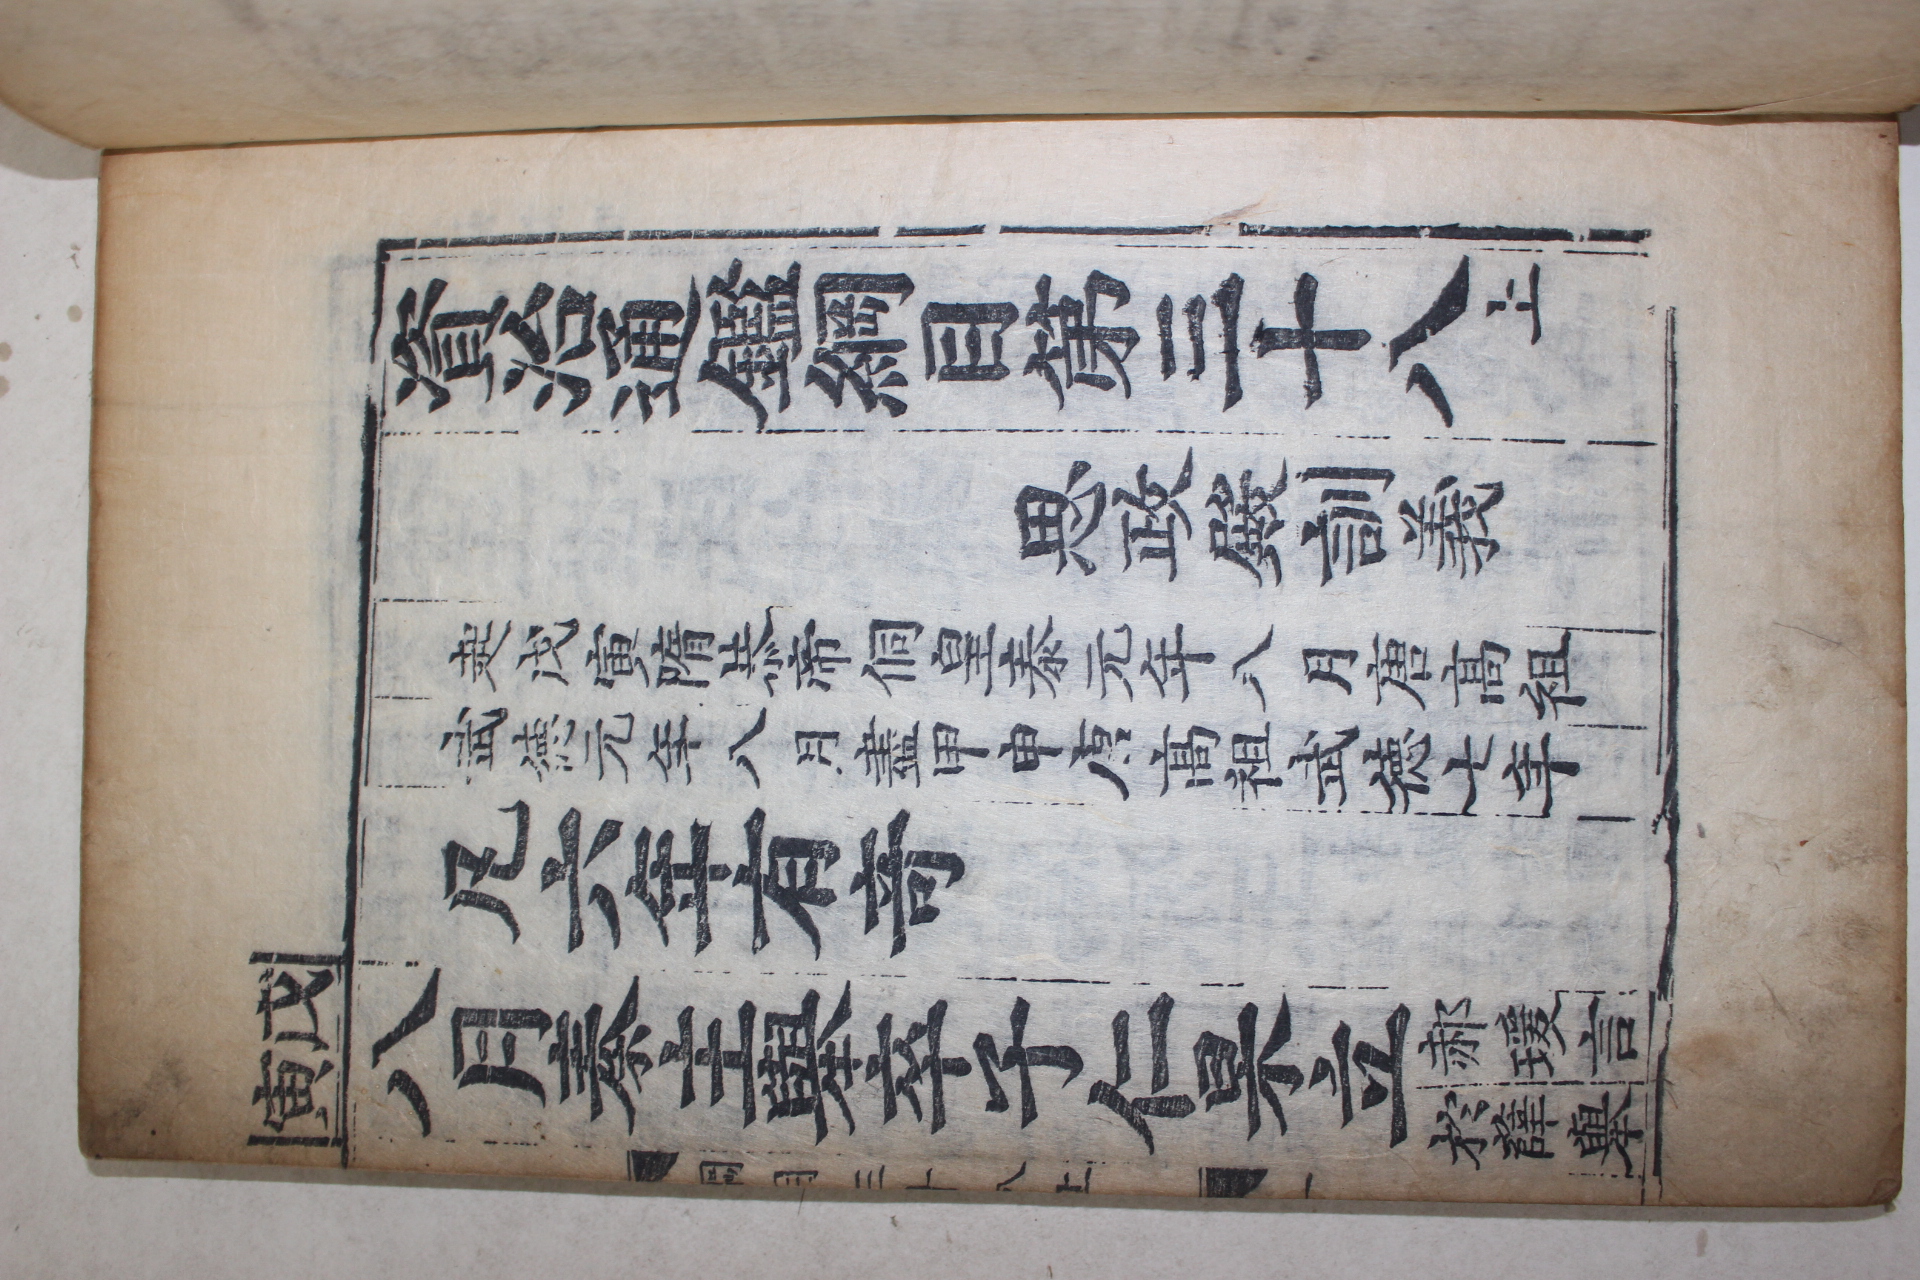 資治通鑑綱目第三十八上
思政殿訓義
起戊寅隋恭帝侗皇泰元年八月唐高祖
武德元年八月盡甲申唐高祖武德七年
凡六年有奇
戊寅
八月秦主舉卒子仁杲立
郝瑗言
於薛舉
綱目三十八上
一